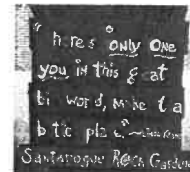 "heres only one
you in this g eat
bi word, m ke t a
b t c pl ce."~
Santarogue Rock Garden